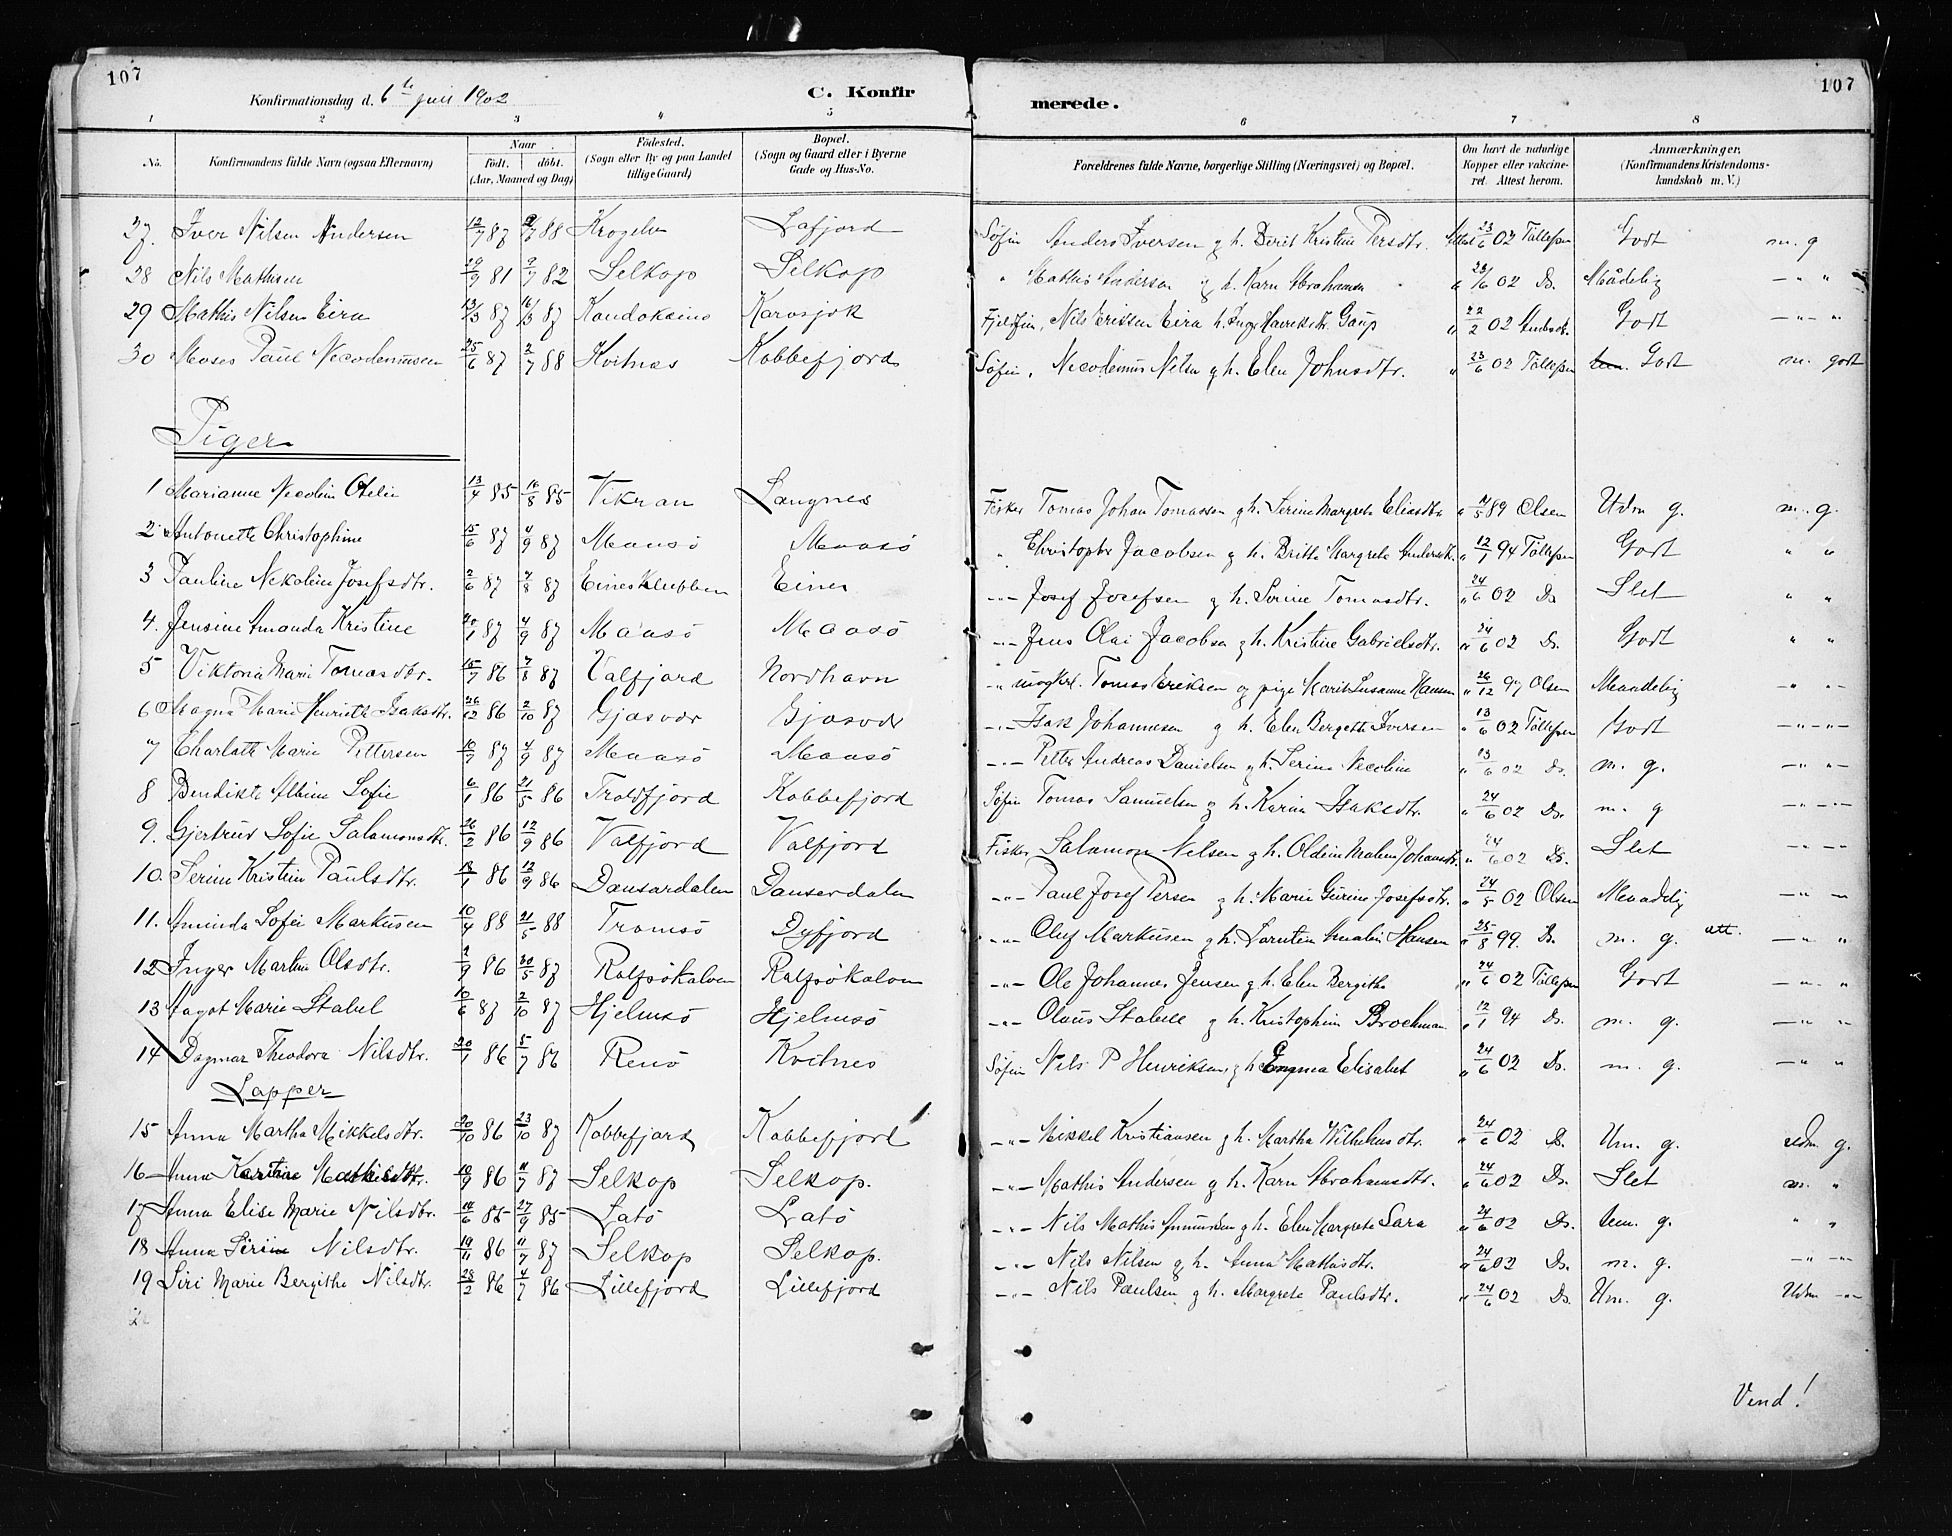 107 107
Konfirmationsdag d. 6te juli 1902 C. Konfirmerede.
1 2 3 4 5 6 7 8
No. Konfirmandens fulde Navn (ogsaa Efternavn) Naar født. døbt. (Aar, Maaned og Dag) Födested. (Sogn eller By og paa Landet tillige Gaard) Bopæl. (Sogn og Gaard eller i Byerne Gade og Hus-No. Forældrenes fulde Navne, borgerlige Stilling (Næringsvei) og Bopæl. Om havt de naturlige Kopper eller vakcineret. Attest herom. Anmærkninger. (Konfirmandens Kristendomskundskab m. V.)
27. Iver Nilsen Andersen 12/7 87 88 Krogelv Lafjord Søfin Anders Iversen g h. Berit Kristine Persdtr. Attest 23/6 02 Tollefsen Godt m. g
28 Nils Mathisen 29/9 81 9/7 82 Selkop Selkop " Mathis Andersen g h. Karn Abrahamsen " 23/6 02 Do. Mådelig — " "
29 Mathis Nilsen Eira 13/3 87 16/3 87 Koutokeino Karasjok Fjeldfin, Nils Eriksen Eira h. Inge Gaup " 22/2 02 Godt — " — "
30 Moses Paul Necodemusen 25/6 87 2/7 88 Kvitnes Kobbefjord Søfin, Necodemus Nilsen g h. Elen Johnsdtr. " 23/6 02 Tollefsen Godt m. godt
Piger
1 Marianne Necoline Otelie 13/4 85 16/8 85 Vikran Langnes Fisker Tomas Johan Tomassen g h. Serine Margrete Eliasdtr " 4/5 89 Olsen Udm g. m. g.
2 Antonette Christophine 15/6 87 4/9 87 Maasö Maasö " Christopher Jacobsen g h. Britta Margrete Andersdtr. " 12/1 94 Tollefsen Godt " "
3 Pauline Nekoline Josefsdtr. 2/6 87 7/8 87 Eines Klubben Eines —"— Josef Josefsen g h. Serine Tomasdtr. " 24/6 02 Do Slet " "
4. Jensine Amanda Kristine 20/1 87 4/9 87 Maasö Maasö —"— Jens Olai Jacobsen g h. Kristine Gabrielsdtr. " 24/6 02 D. Godt " "
5 Viktoria Marie Tomasdtr. 15/7 86 7/8 87 Valfjord Nordhavn —"— ungkrl. Tomas Eriksen og pige Marit Susanne Hansen " 26/12 97 Olsen Maadelig " —
6 Magna Marie Henriette Isaksdtr. 26/12 86 2/10 87 Gjæsvær Gjæsvær —"— Isak Johannesen g h. Elen Bergette Iversen " 13/6 02 Tollefsen Godt —"—"—
7 Charlotte Marie Pettersen 10/7 87 4/9 87 Maasö Maasö —"— Petter Andreas Danielsen g h. Serine Necoline " 13/6 02 Do. m. g. —" "—
8 Bendikte Albine Sofie 6/1 86 21/5 86 Troldfjord Kobbefjord Søfin Tomas Samuelsen g h. Karen Isaksdtr. " 24/6 02 Do. m. g —"—"—
9. Gjertrud Sofie Salamonsdtr. 26/2 86 12/9 86 Valfjord Valfjord Fisker Salamon Nilsen g h. Oldine Malene Johansdtr. " 24/6 02 Do. Slet — " —
10. Serine Kristine Paulsdtr. 13/1 86 12/9 86 Dansardalen Dansardalen —"— Paul Josef Persen g h. Marie Gurine Josefsdtr. " 24/5 02 Olsen Maadelig —" "
11. Aminda Sofie Markusen 10/4 88 21/5 88 Tromsö Dyfjord —"— Oluf Markusen g h. Lorentin Amalie Hansen " 25/8 99. D. m. g. att. —" "
12 Inger Martine Olsdtr. 2/9 86 30/5 87 Rolfsökalven Rolfsökalven —"— Ole Johannes Jensen g h. Elen Bergithe " 24/6 02 Tollefsen Godt —". "
13 Aagot Marie Stabel 10/6 87 2/10 87 Hjelmsö Hjelmsö —"— Olaus Stabell g h. Kristophine Brochman " 12/1 94 Do. m. g. —" "
14 Dagmar Theodora Nilsdtr. 20/1 86 5/7 86 Renö Kvitnes Søfin Nils P Henriksen g h Emma Elisabet " 24/6 02 Do. m. g. —" "
Lapper
15 Anna Martha Mikkelsdtr. 20/10 86 23/10 87 Kobbefjord Kobbefjord —"— Mikkel Kristiansen g h. Martha Wilhelmsdtr. " 24/6 02 D. Um. g. udm g.
16 Anna Karstine Mathisdtr. 10/9 86 11/7 87 Selkop Selkop. —"— Mathis Andersen g h. Karn Abrahamsdtr. " 24/6 02 Do. Slet m. "
17 Anna Elise Marie Nilsdtr. 14/6 85 27/9 85 Latö Latö —"— Nils Mathis Amundsen g h. Elen Margrete Sara " 24/6 02 Do. Um. g. " "
18 Anna Sirine Nilsdtr. 19/11 86 11/7 87 Selkop Selkop. —"— Nils Nilsen g h. Anna Mathisdtr. " 24/6 02 Do. m. g. —" "—
19 Siri Marie Bergithe Nilsdtr. 28/2 86 4/7 86 Lillefjord Lillefjord —"— Nils Paulsen g h. Margrete Paulsdtr. " 24/6 02 Do. Um. g. Udm —"—
Vend!